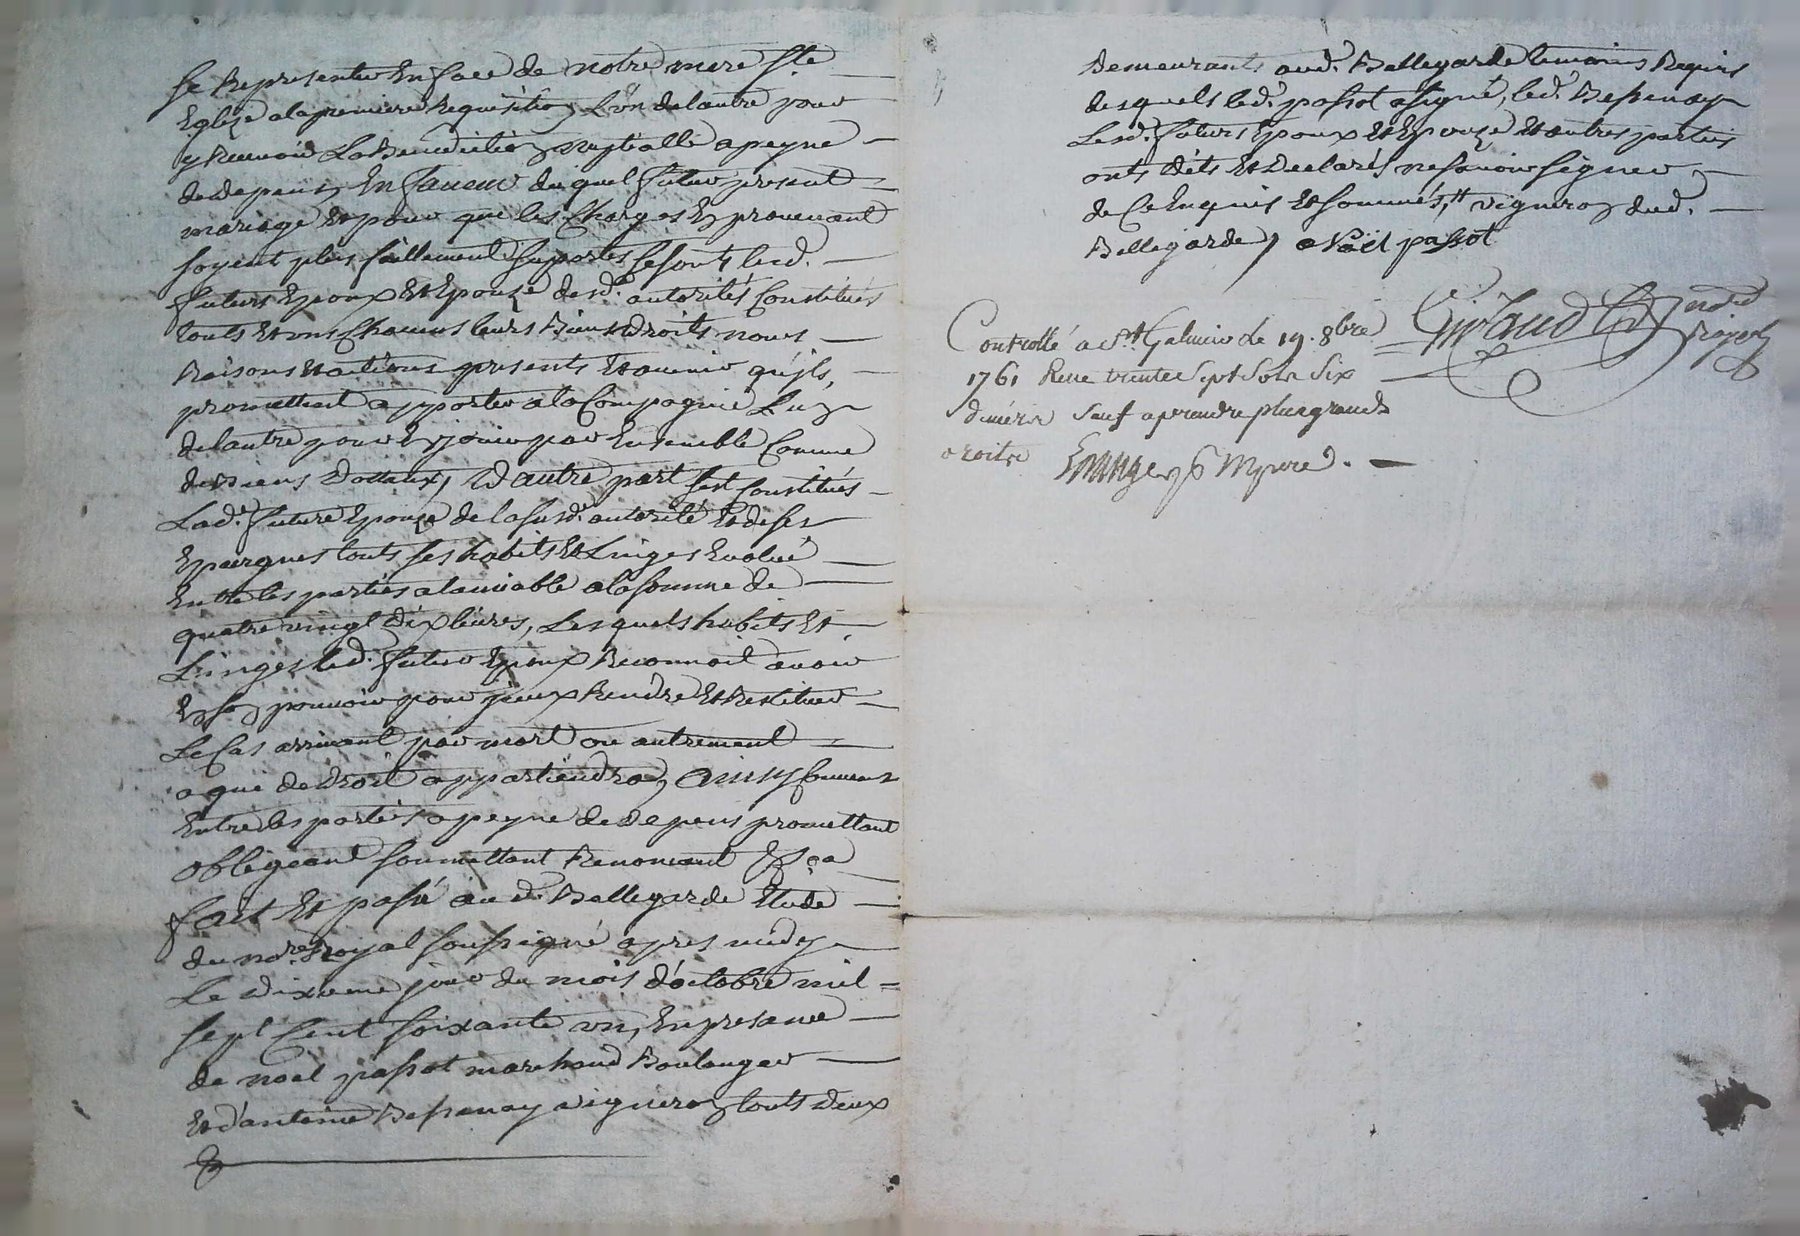 se Representer En face de notre mere Ste
Eglize a la premiere Requisition L'un de lautre pour
y Recevoir La Benediction nuptialle a peyne
de depens, En faveur duquel futur present
mariage Et pour que les Charges En provenant
soyent plus facillement suportés se sont lesd.
futurs Epoux Et Epouze desd. autorités Constitués
touts Et uns Chacuns leurs Biens droits noms
Raisons Et actions presents Et avenir qu'jls
promettent apporter a la Compagnie L'un
de lautre pour En jouir par Ensemble Comme
de Biens Dottaux, Et d'autre part s'est Constitués
Lad. future Epouze de la susd. autorité Et de ses
Epargnes touts ses habits Et Linges Evalué
Entre les parties a lamiable a la somme de
quatre vingt dix livres, Lesquels habits Et
Linges led. futur Epoux Reconnoit avoir
En son pouvoir pour jceux Rendre Et Restituer
Le Cas arrivant par mort ou autrement
a qui de droit appartiendra, ainsy Convenu
Entre les parties a peyne de depens promettant
obligeant soumettant Renoncant &a
fait Et passé aud. Bellegarde Etude
du nore Royal soussigné apres midy
Le dixieme jour du mois d'octobre mil
sept Cent soixante un, En presance
de noel passot marchand Boulanger
Et d'antoine Bessenay vigneron touts deux
Demeurants aud. Bellegarde temoins Requis
desquels led. passot a signé, led. Bessenay
Lesd. futurs Epoux Et Epouze Et autres parties
onts dits Et Declarés ne savoir signer
de Ce Enquis Et sommés, vigneron dud.
Bellegarde, Noël passot
Giraud nore Royal
Controllé a St Galmier le 19. 8bre
1761 Receu trente sept sols six
deniers sauf a prendre plus grands
droits